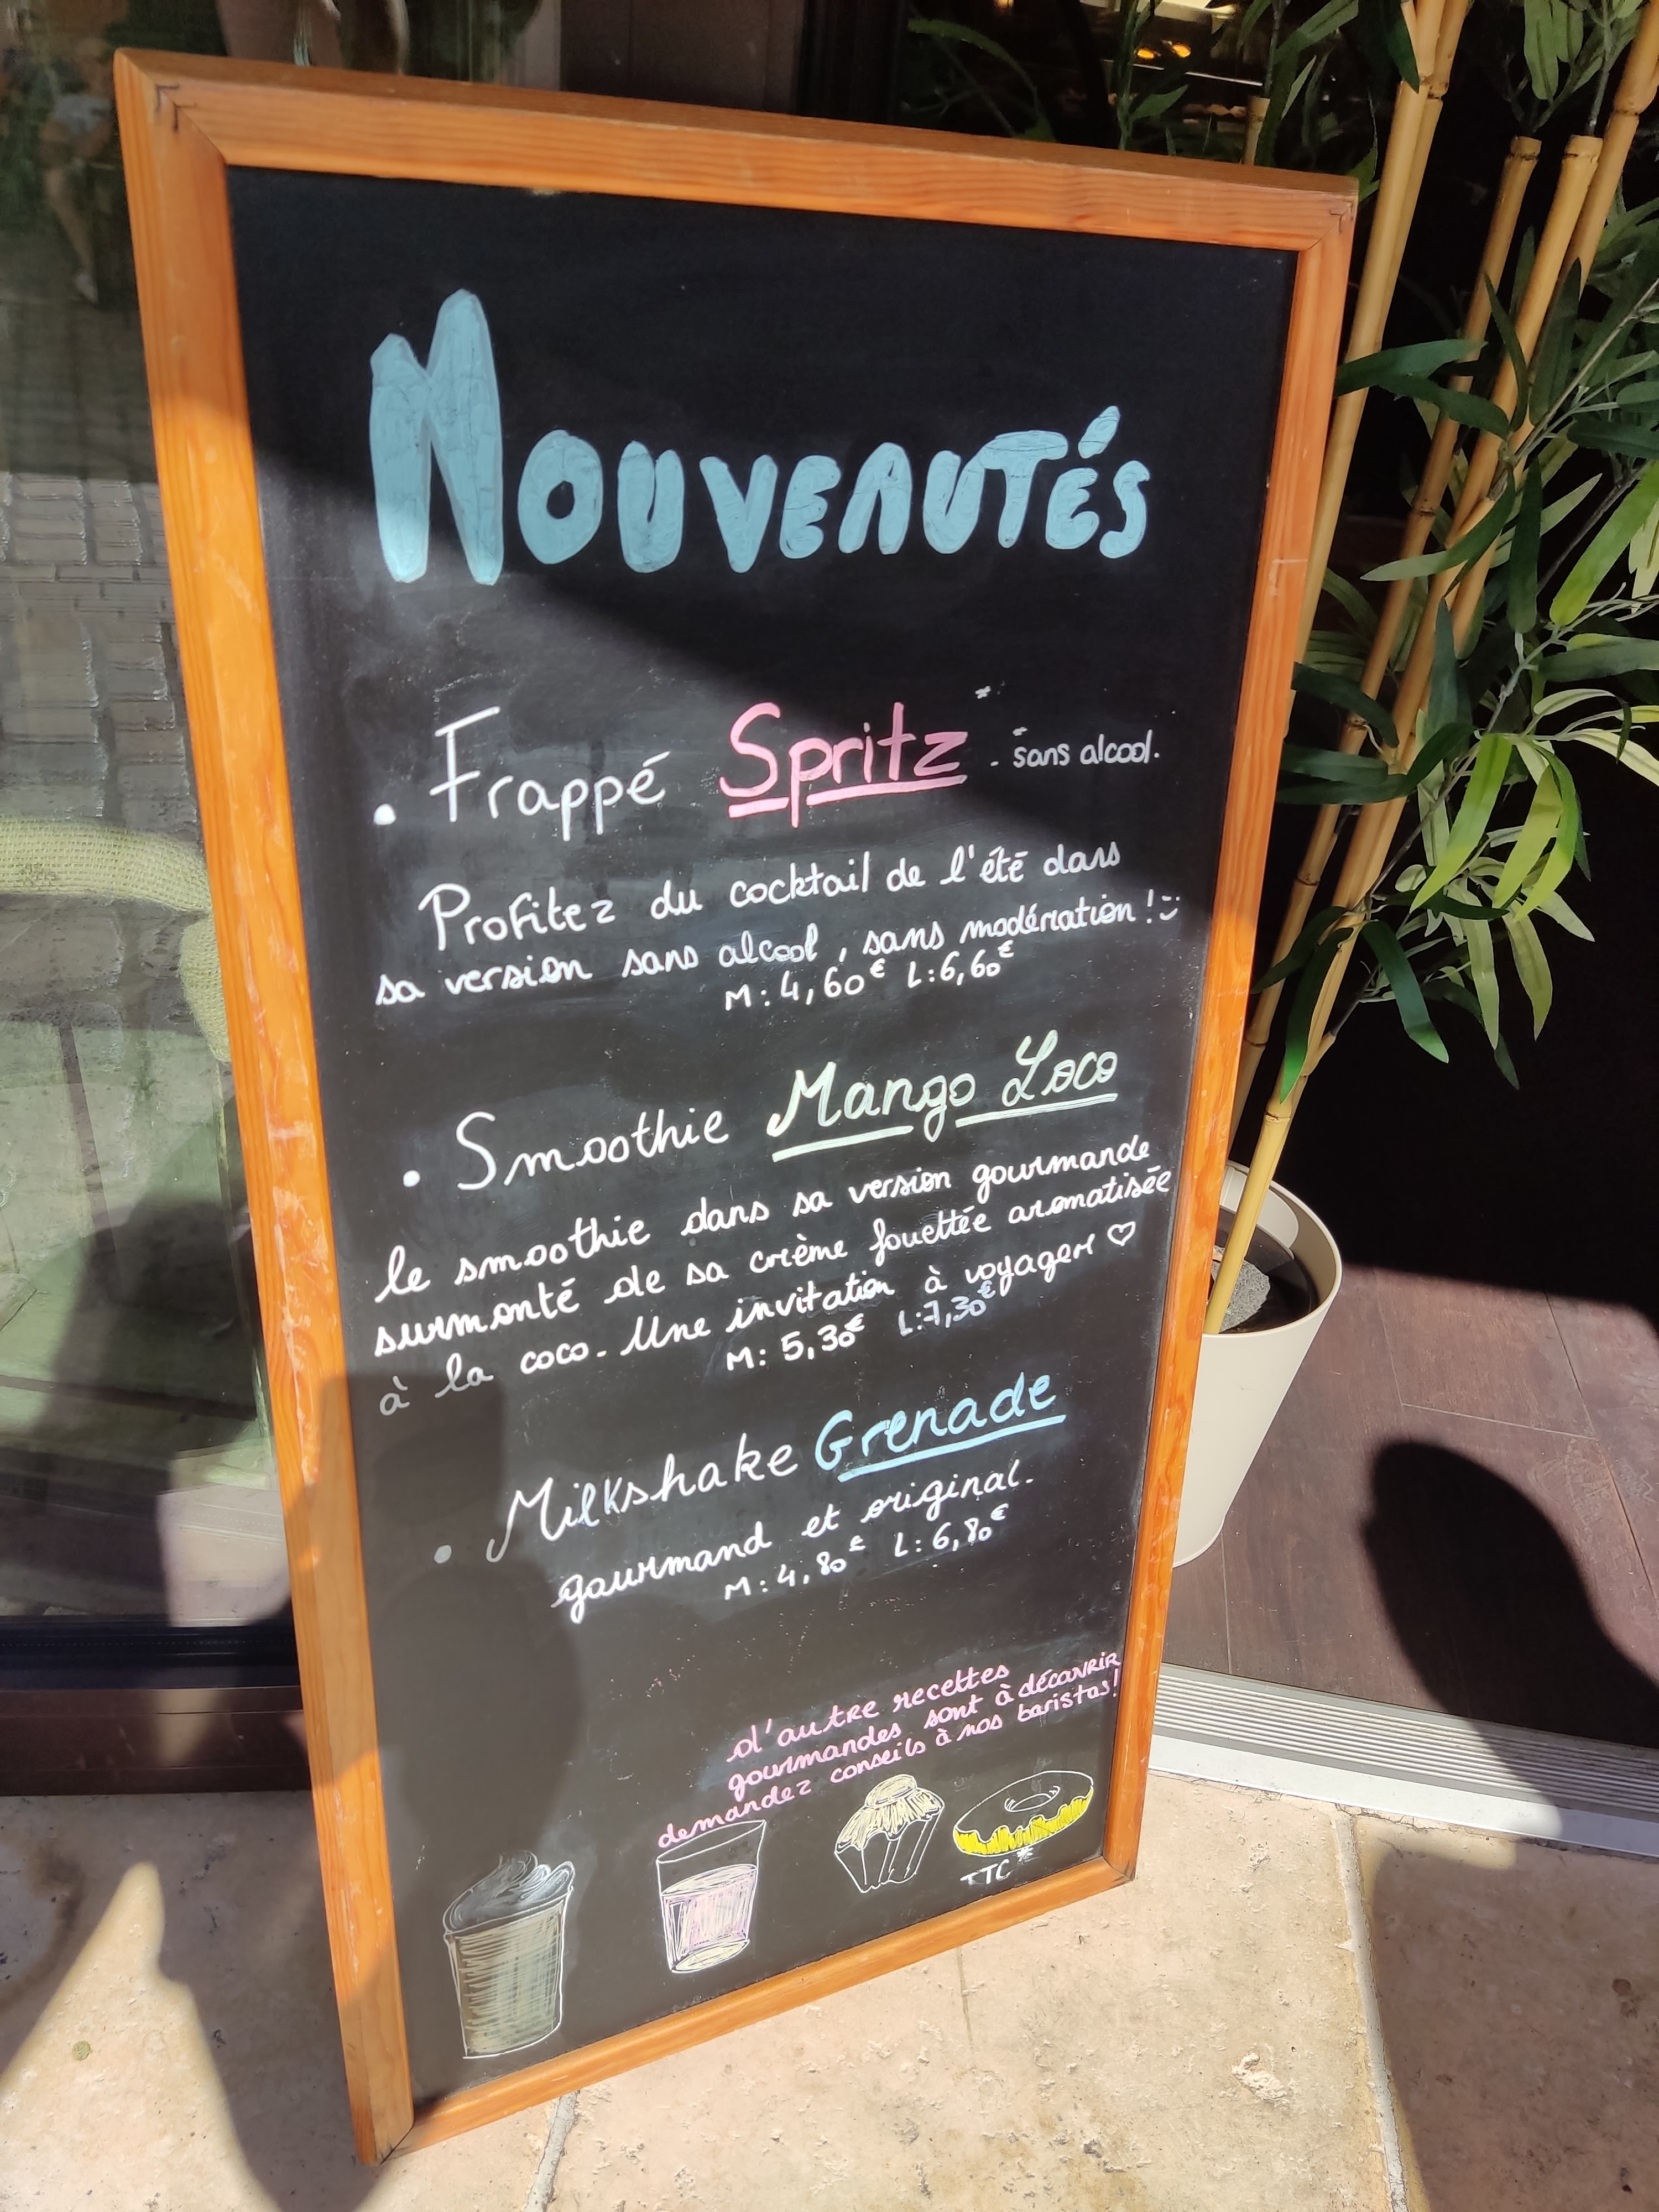 NOUVEAUTÉS
. Frappé Spritz * - sans alcool.
Profitez du cocktail de l'été dans
sa version sans alcool, sans modération ! :)
M : 4,60€ L : 6,60€
. Smoothie Mango Loco
le smoothie dans sa version gourmande
surmonté de sa crème fouettée aromatisée
à la coco. Une invitation à voyager ♡
M : 5,30€ L : 7,30€
. Milkshake Grenade
gourmand et original.
M : 4,80€ L : 6,80€
d'autre recettes
gourmandes sont à découvrir
demandez conseils à nos baristas !
TTC *